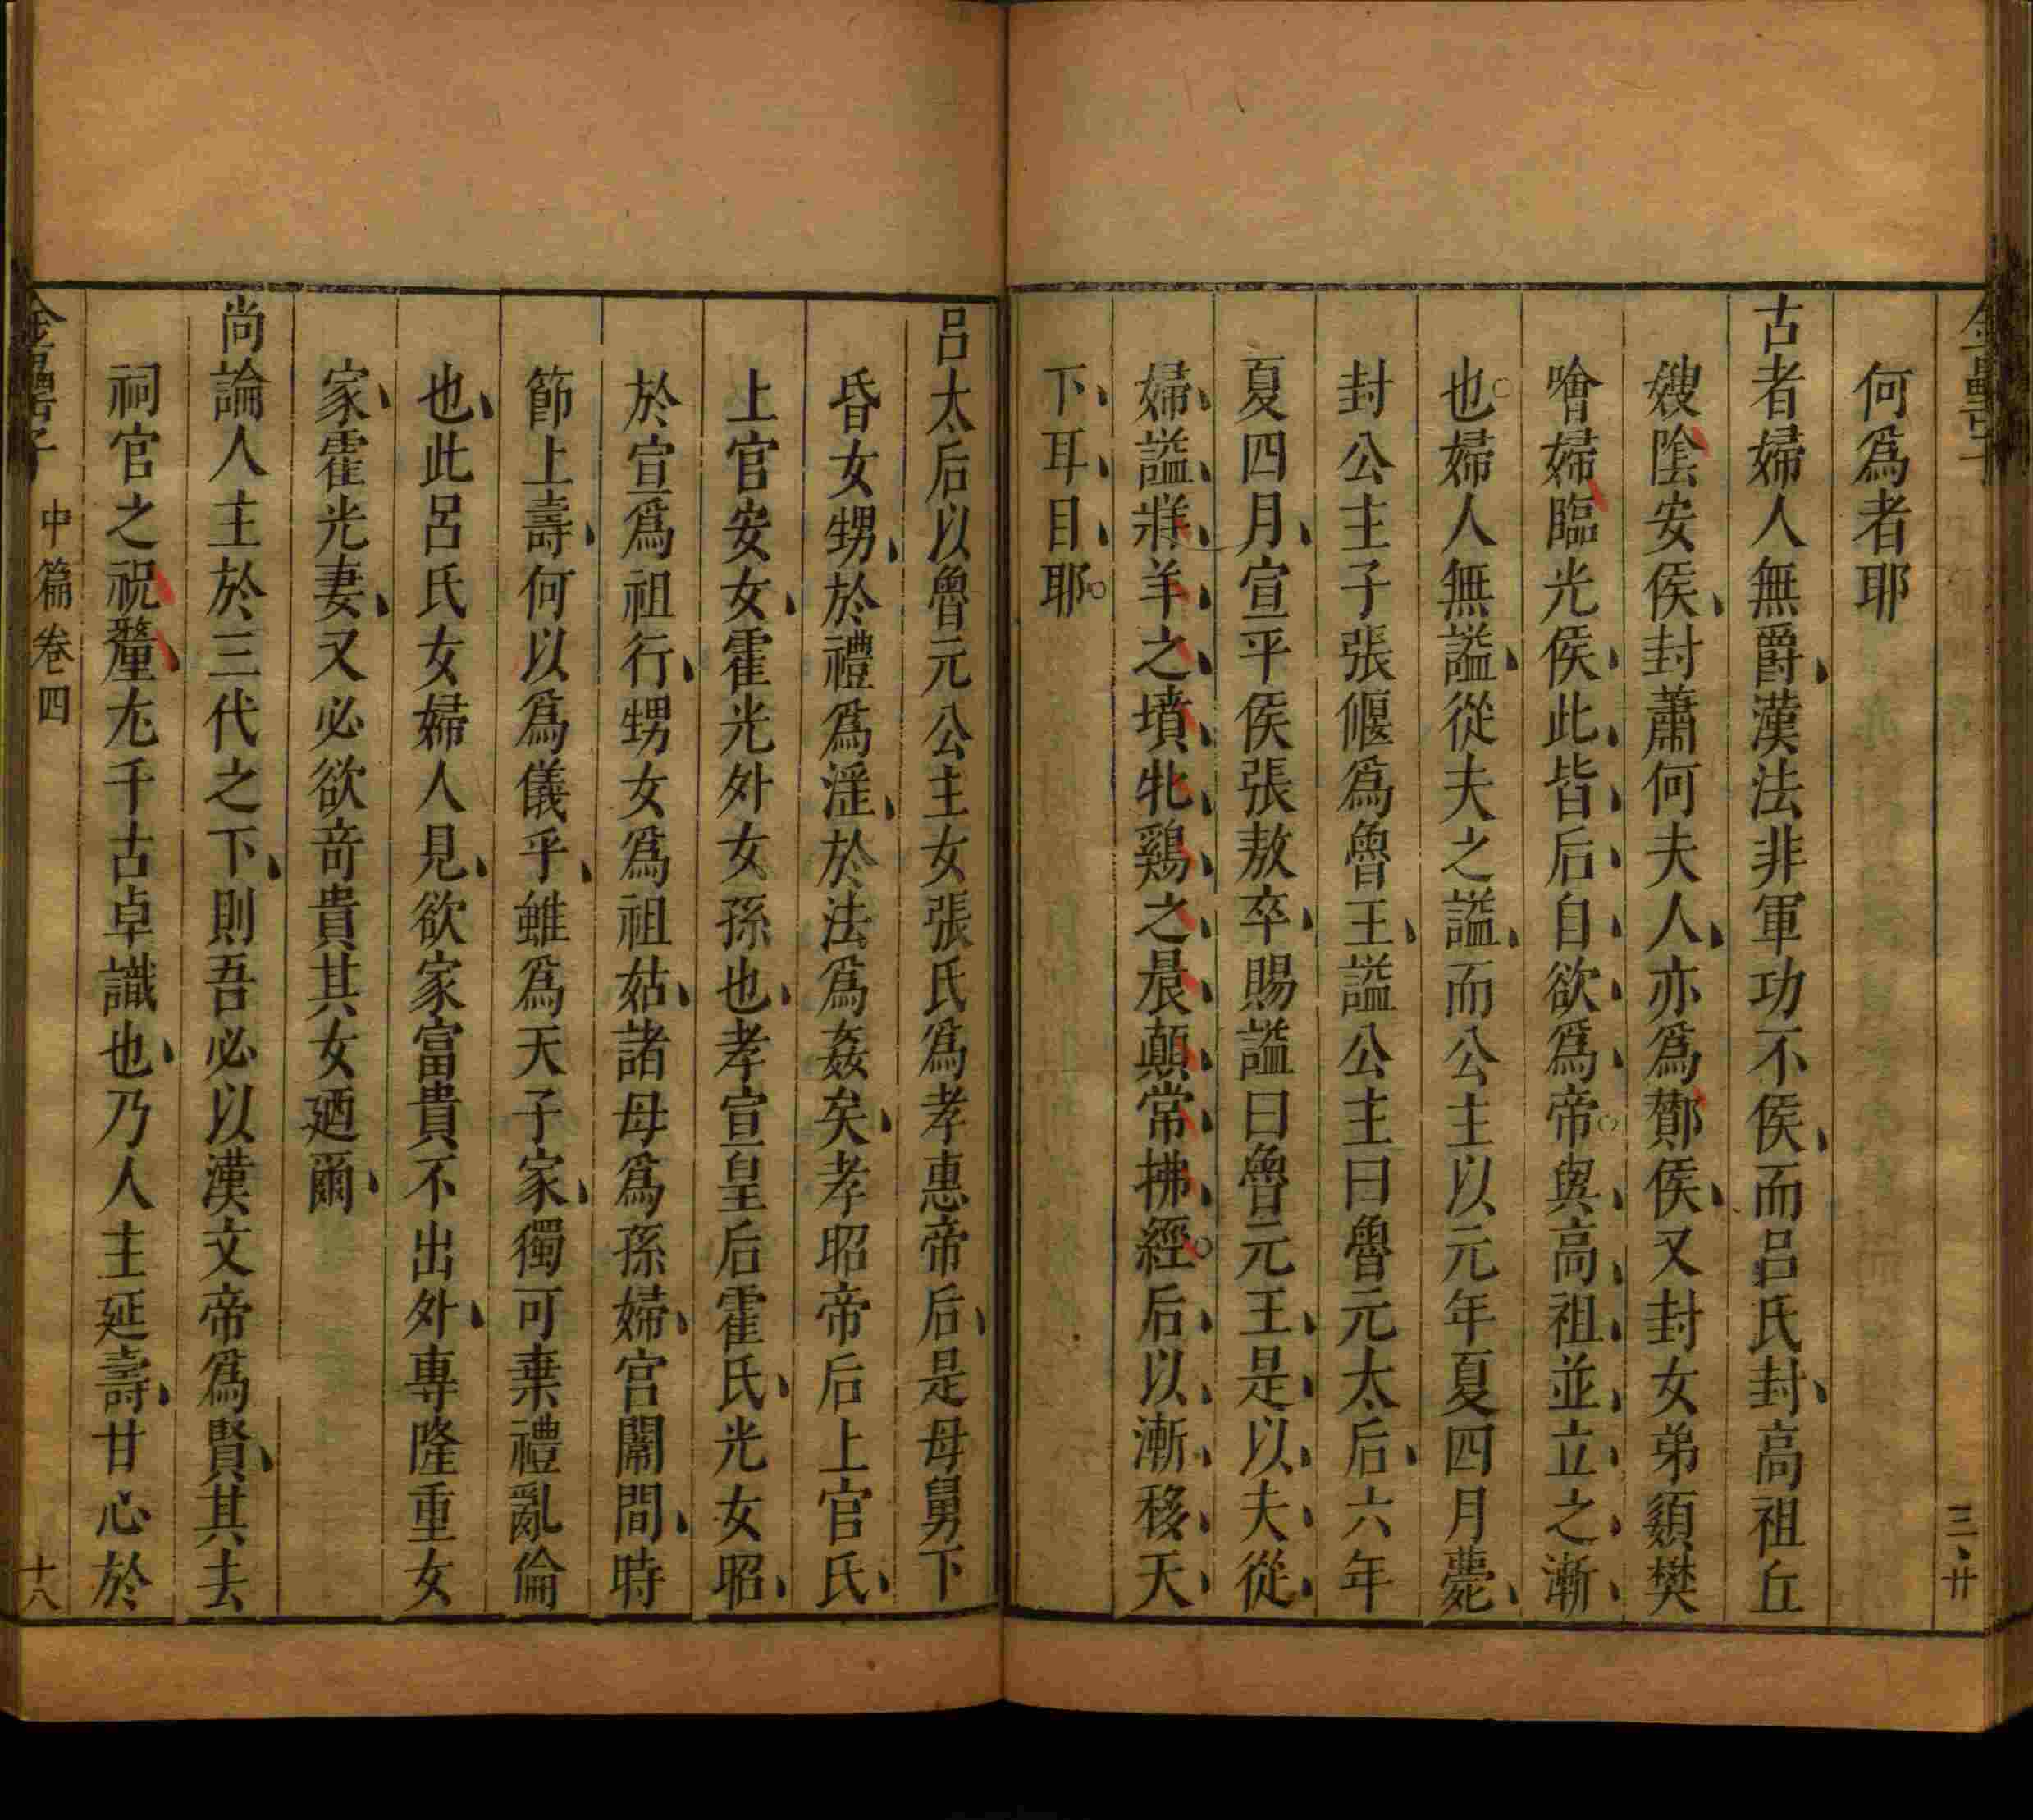 何爲者耶
古者婦人無爵漢法非軍功不侯而呂氏封高祖丘
嫂陰安侯封蕭何夫人亦爲酇侯又封女弟頦樊
噲婦臨光侯此皆后自欲爲帝與高祖並立之漸
也婦人無謚從夫之謚而公主以元年夏四月薨
封公主子張偃爲魯王謚公主曰魯元太后六年
夏四月宣平侯張敖卒賜謚曰魯元王是以夫從
婦謚牂羊之墳牝鷄之晨顛常拂經后以漸移天
下耳目耶
呂太后以魯元公主女張氏爲孝惠帝后是母舅下
昏女甥於禮爲淫於法爲姦矣孝昭帝后上官氏
上官安女霍光外女孫也孝宣皇后霍氏光女昭
於宣爲祖行甥女爲祖姑諸母爲孫婦宮闈間時
節上壽何以爲儀乎雖爲天子家獨可棄禮亂倫
也此呂氏女婦人見欲家富貴不出外專隆重女
家霍光妻又必欲竒貴其女廼爾
尚論人主於三代之下則吾必以漢文帝爲賢其去
祠官之祝釐尤千古卓識也乃人主延壽甘心於
中篇卷四
十八